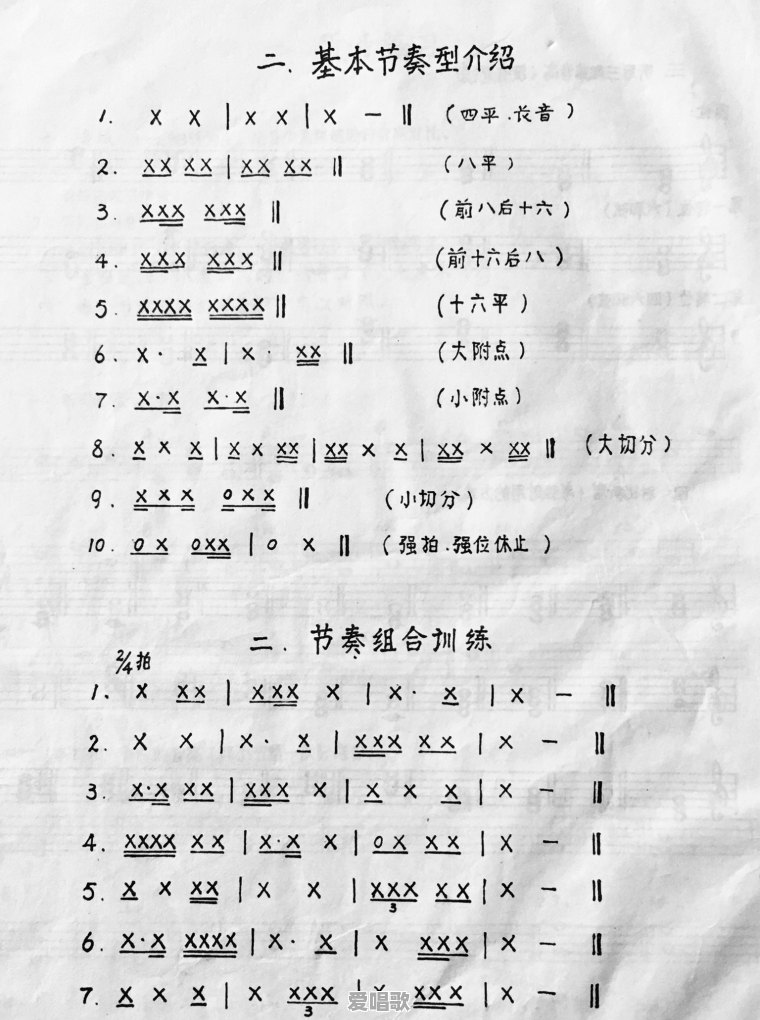 二. 基本节奏型介绍
1. X X | X X | X — ‖ (四平.长音)
2. XX XX | XX XX ‖ (八平)
3. XXX XXX ‖ (前八后十六)
4. XXX XXX ‖ (前十六后八)
5. XXXX XXXX ‖ (十六平)
6. X· X | X· XX ‖ (大附点)
7. X·X X·X ‖ (小附点)
8. X X X | X X XX | XX X X | XX X XX ‖ (大切分)
9. X X X 0 X X ‖ (小切分)
10. 0 X 0XX | 0 X ‖ (强拍.强位休止)
二. 节奏组合训练
2/4拍
1. X XX | XXX X | X· X | X — ‖
2. X X | X· X | XXX XX | X — ‖
3. X·X XX | XXX X | X X X | X — ‖
4. XXXX XX | X·X X | 0X XX | X — ‖
5. X X XX | X X | XXX XX | X — ‖
3
6. X·X XXXX | X· X | X XXX | X — ‖
7. X X X | X XXX | X XXX | X — ‖
3
爱唱歌